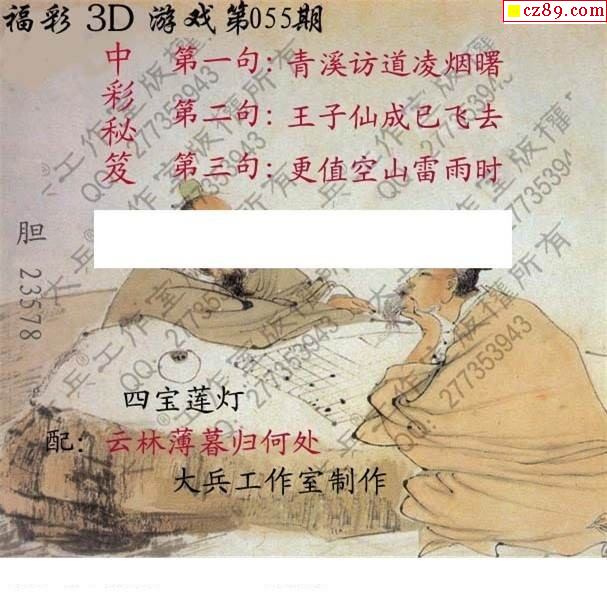 福彩 3D 游戏 第055期
cz89.com
中彩秘笈
第一句：青溪访道凌烟曙
第二句：王子仙成已飞去
第三句：更值空山雷雨时
胆 23578
四宝莲灯
配：云林薄暮归何处
大兵工作室制作
大兵®工作室版權所有
QQ：277353943